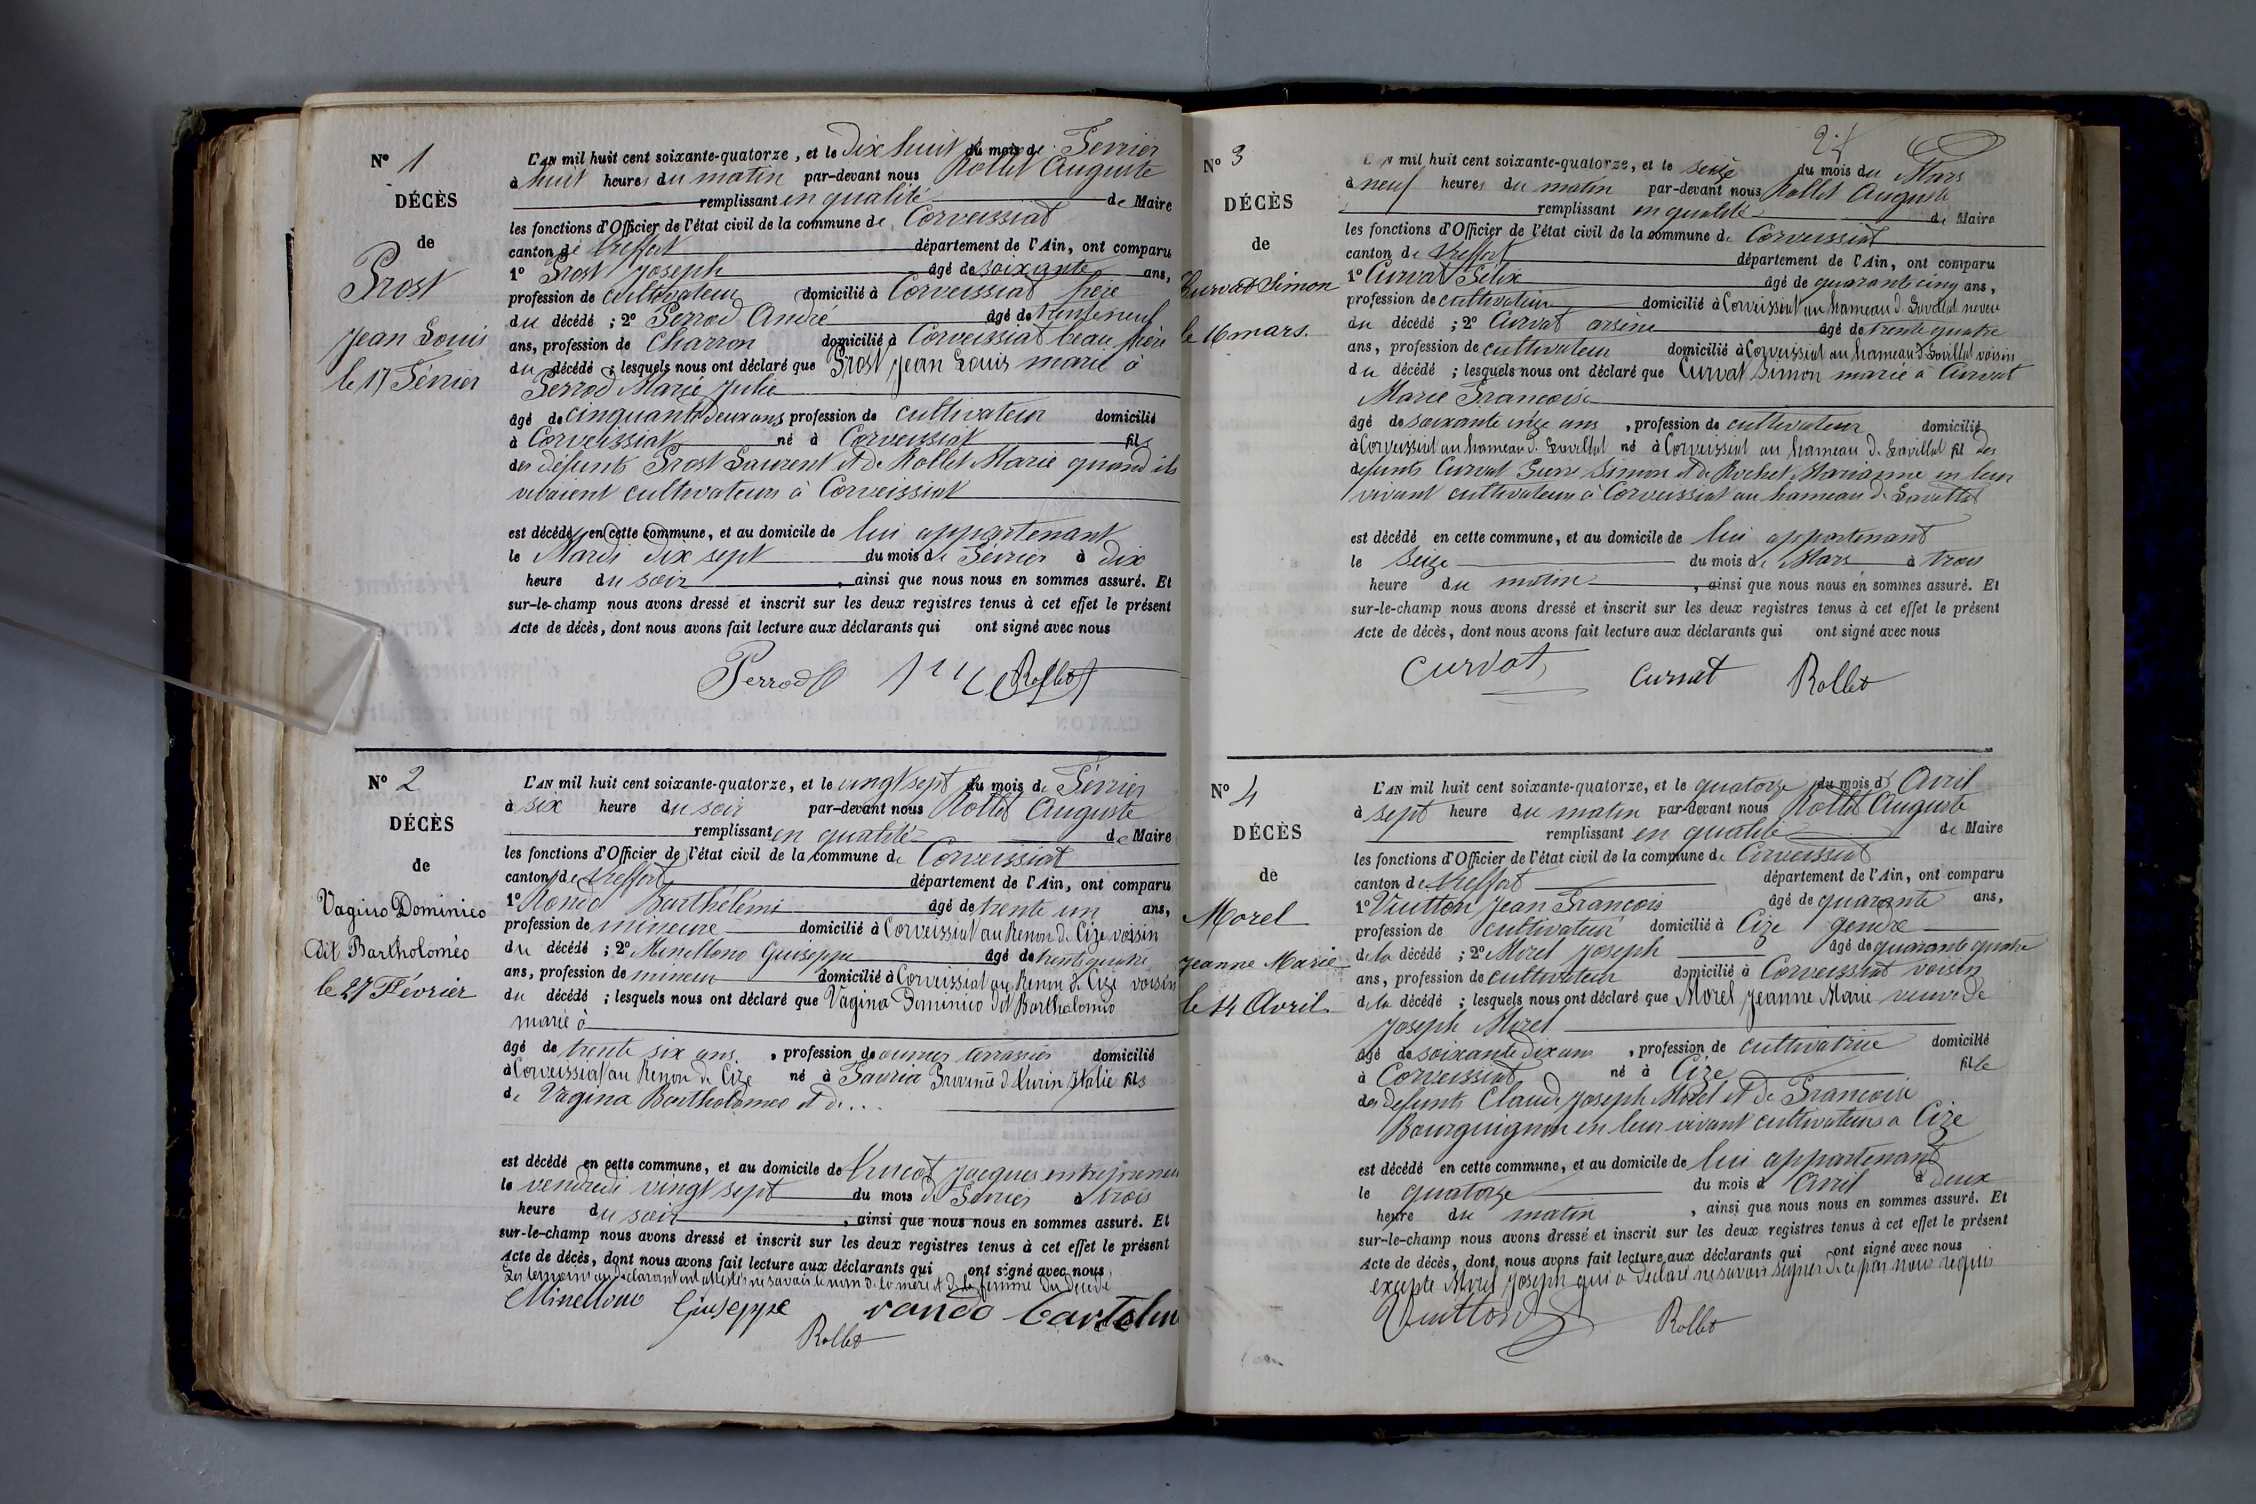 N° 1
DÉCÈS
de
Prost
Jean Louis
le 17 Février
L'AN mil huit cent soixante-quatorze, et le dix huit du mois de Février
à huit heures du matin par-devant nous Rollet Auguste
remplissant en qualité de Maire
les fonctions d'Officier de l'état civil de la commune de Corveissiat
canton de Treffort département de l'Ain, ont comparu
1° Prost Joseph âgé de soixante ans,
profession de cultivateur domicilié à Corveissiat frère
du décédé ; 2° Perrod André âgé de trente neuf
ans, profession de Charron domicilié à Corveissiat beau frère
du décédé ; lesquels nous ont déclaré que Prost Jean Louis marié à
Perrod Marie Julie
âgé de cinquante deux ans profession de cultivateur domicilié
à Corveissiat né à Corveissiat fils
des défunts Prost Laurent et de Rollet Marie quand ils
vivaient cultivateurs à Corveissiat
est décédé en cette commune, et au domicile de lui appartenant
le Mardi dix sept du mois de Février à dix
heure du soir, ainsi que nous nous en sommes assuré. Et
sur-le-champ nous avons dressé et inscrit sur les deux registres tenus à cet effet le présent
Acte de décès, dont nous avons fait lecture aux déclarants qui ont signé avec nous
Perrod Rollet
N° 2
DÉCÈS
de
Vagino Dominico
dit Bartholoméo
le 27 Février
L'AN mil huit cent soixante-quatorze, et le vingt sept du mois de Février
à six heure du soir par-devant nous Rollet Auguste
remplissant en qualité de Maire
les fonctions d'Officier de l'état civil de la commune de Corveissiat
canton de Treffort département de l'Ain, ont comparu
1° Ronco Barthélémi âgé de trente un ans,
profession de mineure domicilié à Corveissiat au Renon de Cize voisin
du décédé ; 2° Minellono Guiseppe âgé de trente quatre
ans, profession de mineur domicilié à Corveissiat au Renon de Cize voisin
du décédé ; lesquels nous ont déclaré que Vagina Dominico dit Bartholomio
marié à
âgé de trente six ans, profession de ouvrier terrassier domicilié
à Corveissiat au Renon de Cize né à Favria Province d Turin Italie fils
de Vagina Bartholomeo et de ...
est décédé en cette commune, et au domicile de Jacques entrepreneur
le vendredi vingt sept du mois de Février à trois
heure du soir, ainsi que nous nous en sommes assuré. Et
sur-le-champ nous avons dressé et inscrit sur les deux registres tenus à cet effet le présent
Acte de décès, dont nous avons fait lecture aux déclarants qui ont signé avec nous
Les témoins ou déclarant ont attestés ne savoir le nom de la mère et de la femme du décédé
Minellono Giuseppe ronco bartolm
Rollet
24
N° 3
DÉCÈS
de
Curvat Simon
le 16 mars.
L'AN mil huit cent soixante-quatorze, et le seize du mois du Mars
à neuf heures du matin par-devant nous Rollet Auguste
remplissant en qualité de Maire
les fonctions d'Officier de l'état civil de la commune de Corveissiat
canton de Treffort département de l'Ain, ont comparu
1° Curvat Félix âgé de quarante cinq ans,
profession de cultivateur domicilié à Corveissiat au hameau d. Lavillat neveu
du décédé ; 2° Curvat arsène âgé de trente quatre
ans, profession de cultivateur domicilié à Corveissiat au hameau d. Lavillat voisin
du décédé ; lesquels nous ont déclaré que Curvat Simon marié à Curvat
Marie Françoise
âgé de soixante ans, profession de cultivateur domicilié
à Corveissiat au hameau d. Lavillat né à Corveissiat au hameau d. Lavillat fil des
defunts Curvat Pierre Simon et de Rochet Marianne en leur
vivant cultivateurs à Corveissiat au hameau de Lavillat
est décédé en cette commune, et au domicile de lui appartenant
le Seize du mois de Mars à trois
heure du matin, ainsi que nous nous en sommes assuré. Et
sur-le-champ nous avons dressé et inscrit sur les deux registres tenus à cet effet le présent
Acte de décès, dont nous avons fait lecture aux déclarants qui ont signé avec nous
Curvat Curvat Rollet
N° 4
DÉCÈS
de
Morel
Jeanne Marie
le 14 Avril
L'AN mil huit cent soixante-quatorze, et le quatorze du mois d' Avril
à sept heure du matin par-devant nous Rollet Auguste
remplissant en qualité de Maire
les fonctions d'Officier de l'état civil de la commune de Corveissiat
canton de Treffort département de l'Ain, ont comparu
1° Vuitton Jean François âgé de quarante ans,
profession de cultivateur domicilié à Cize gendre
de la décédé ; 2° Morel Joseph âgé de quarante quatre
ans, profession de cultivateur domicilié à Corveissiat voisin
de la décédé ; lesquels nous ont déclaré que Morel Jeanne Marie veuve de
Joseph Morel
âgé de soixante dix ans, profession de cultivatrice domicilié
à Corveissiat né à Cize fille
des defunts Claude Joseph Morel et de Françoise
Bourguignon en leur vivant cultivateurs a Cize
est décédé en cette commune, et au domicile de lui appartenant
le quatorze du mois d Avril à deux
heure du matin, ainsi que nous nous en sommes assuré. Et
sur-le-champ nous avons dressé et inscrit sur les deux registres tenus à cet effet le présent
Acte de décès, dont nous avons fait lecture aux déclarants qui ont signé avec nous
excepte Morel Joseph qui a déclaré ne savoir signer de ce par nous requis
Vuitton Rollet